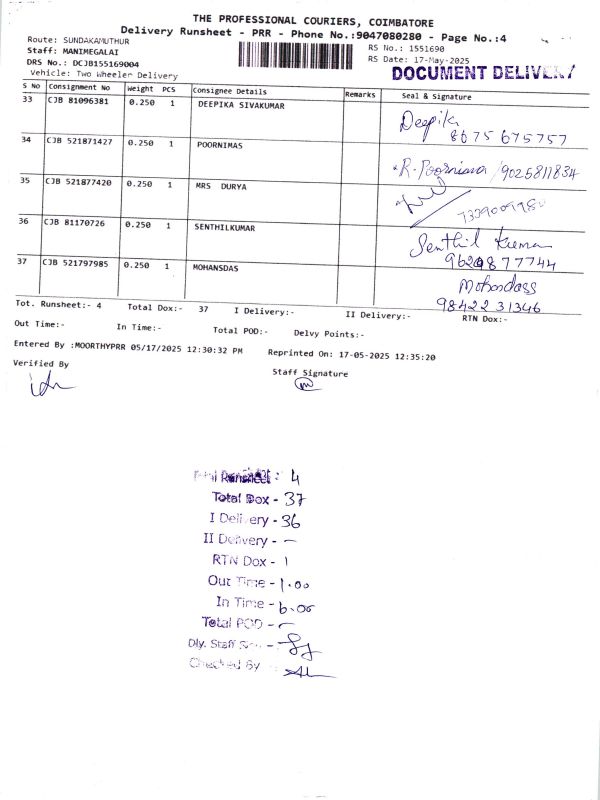 THE PROFESSIONAL COURIERS, COIMBATORE
Delivery Runsheet - PRR - Phone No.:9047080280 - Page No.:4
Route: SUNDAKAMUTHUR
RS No.: 1551690
Staff: MANIMEGALAI
RS Date: 17-May-2025
DRS No.: DCJB155169004
DOCUMENT DELIVERY
Vehicle: Two Wheeler Delivery
S No Consignment No Weight PCS Consignee Details Remarks Seal & Signature
33 CJB 81096381 0.250 1 DEEPIKA SIVAKUMAR
Deepika
8675 675757
34 CJB 521871427 0.250 1 POORNIMAS
R. Poornima /9025811834
35 CJB 521877420 0.250 1 MRS DURYA
36 CJB 81170726 0.250 1 SENTHILKUMAR
Senthil Kumar
37 CJB 521797985 0.250 1 MOHANSDAS
Mohandass
98422 31346
Tot. Runsheet:- 4 Total Dox:- 37 I Delivery:- II Delivery:- RTN Dox:-
Out Time:- In Time:- Total POD:- Delvy Points:-
Entered By :MOORTHYPRR 05/17/2025 12:30:32 PM Reprinted On: 17-05-2025 12:35:20
Verified By
Staff Signature
Total Runsheet : 4
Total Dox - 37
I Delivery - 36
II Delivery - -
RTN Dox - 1
Out Time - 1.00
In Time - 6.00
Total POD -
Dly. Staff
Checked By